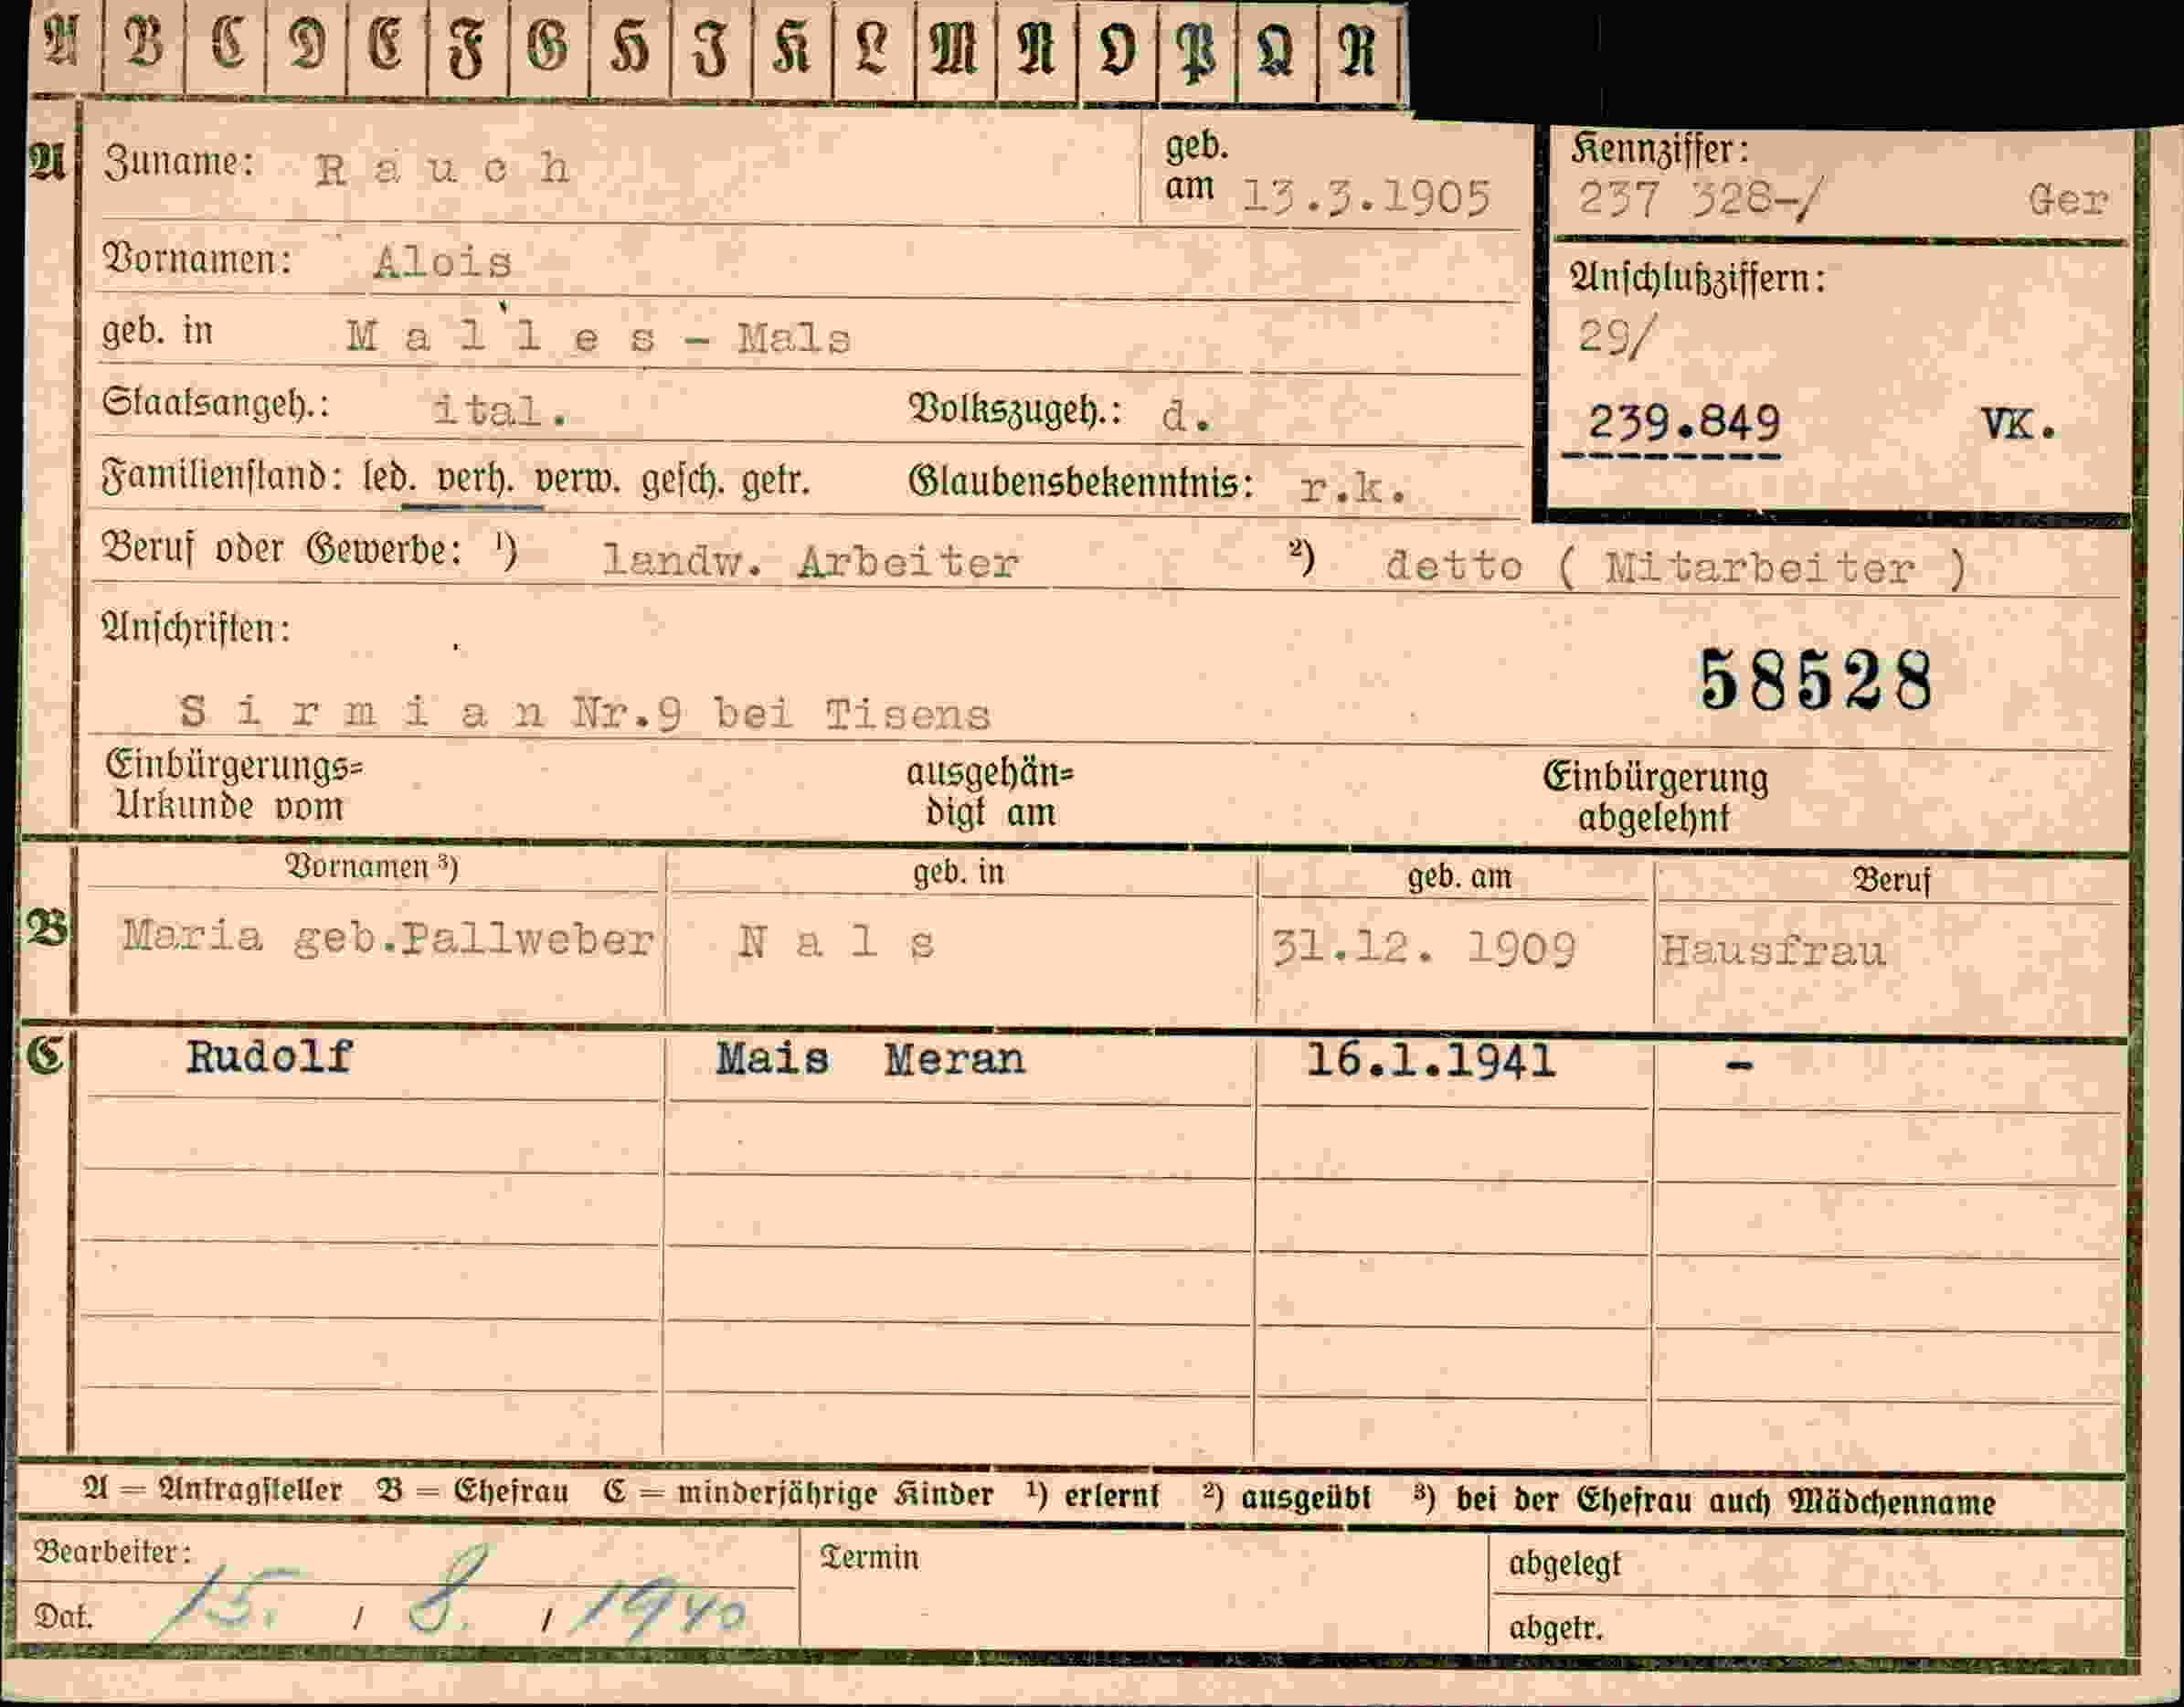 A B C D E F G H I K L M N O P Q R
A Zuname: Rauch geb. am 13.3.1905
Kennziffer:
237 328-/ Ger
Vornamen: Alois
Anschlußziffern:
geb. in Malles - Mals
29/
Staatsangeh.: ital. Volkszugeh.: d.
239.849 VK.
Familienstand: led. verh. verw. gesch. getr. Glaubensbekenntnis: r.k.
Beruf oder Gewerbe: ¹) landw. Arbeiter ²) detto ( Mitarbeiter )
Anschriften:
58528
Sirmian Nr.9 bei Tisens
Einbürgerungs= ausgehän= Einbürgerung
Urkunde vom digt am abgelehnt
Vornamen ³) geb. in geb. am Beruf
B Maria geb.Pallweber Nals 31.12. 1909 Hausfrau
C Rudolf Mais Meran 16.1.1941 -
A = Antragsteller B = Ehefrau C = minderjährige Kinder ¹) erlernt ²) ausgeübt ³) bei der Ehefrau auch Mädchenname
Bearbeiter: Termin abgelegt
Dat. 15. / 8. / 1940 abgetr.